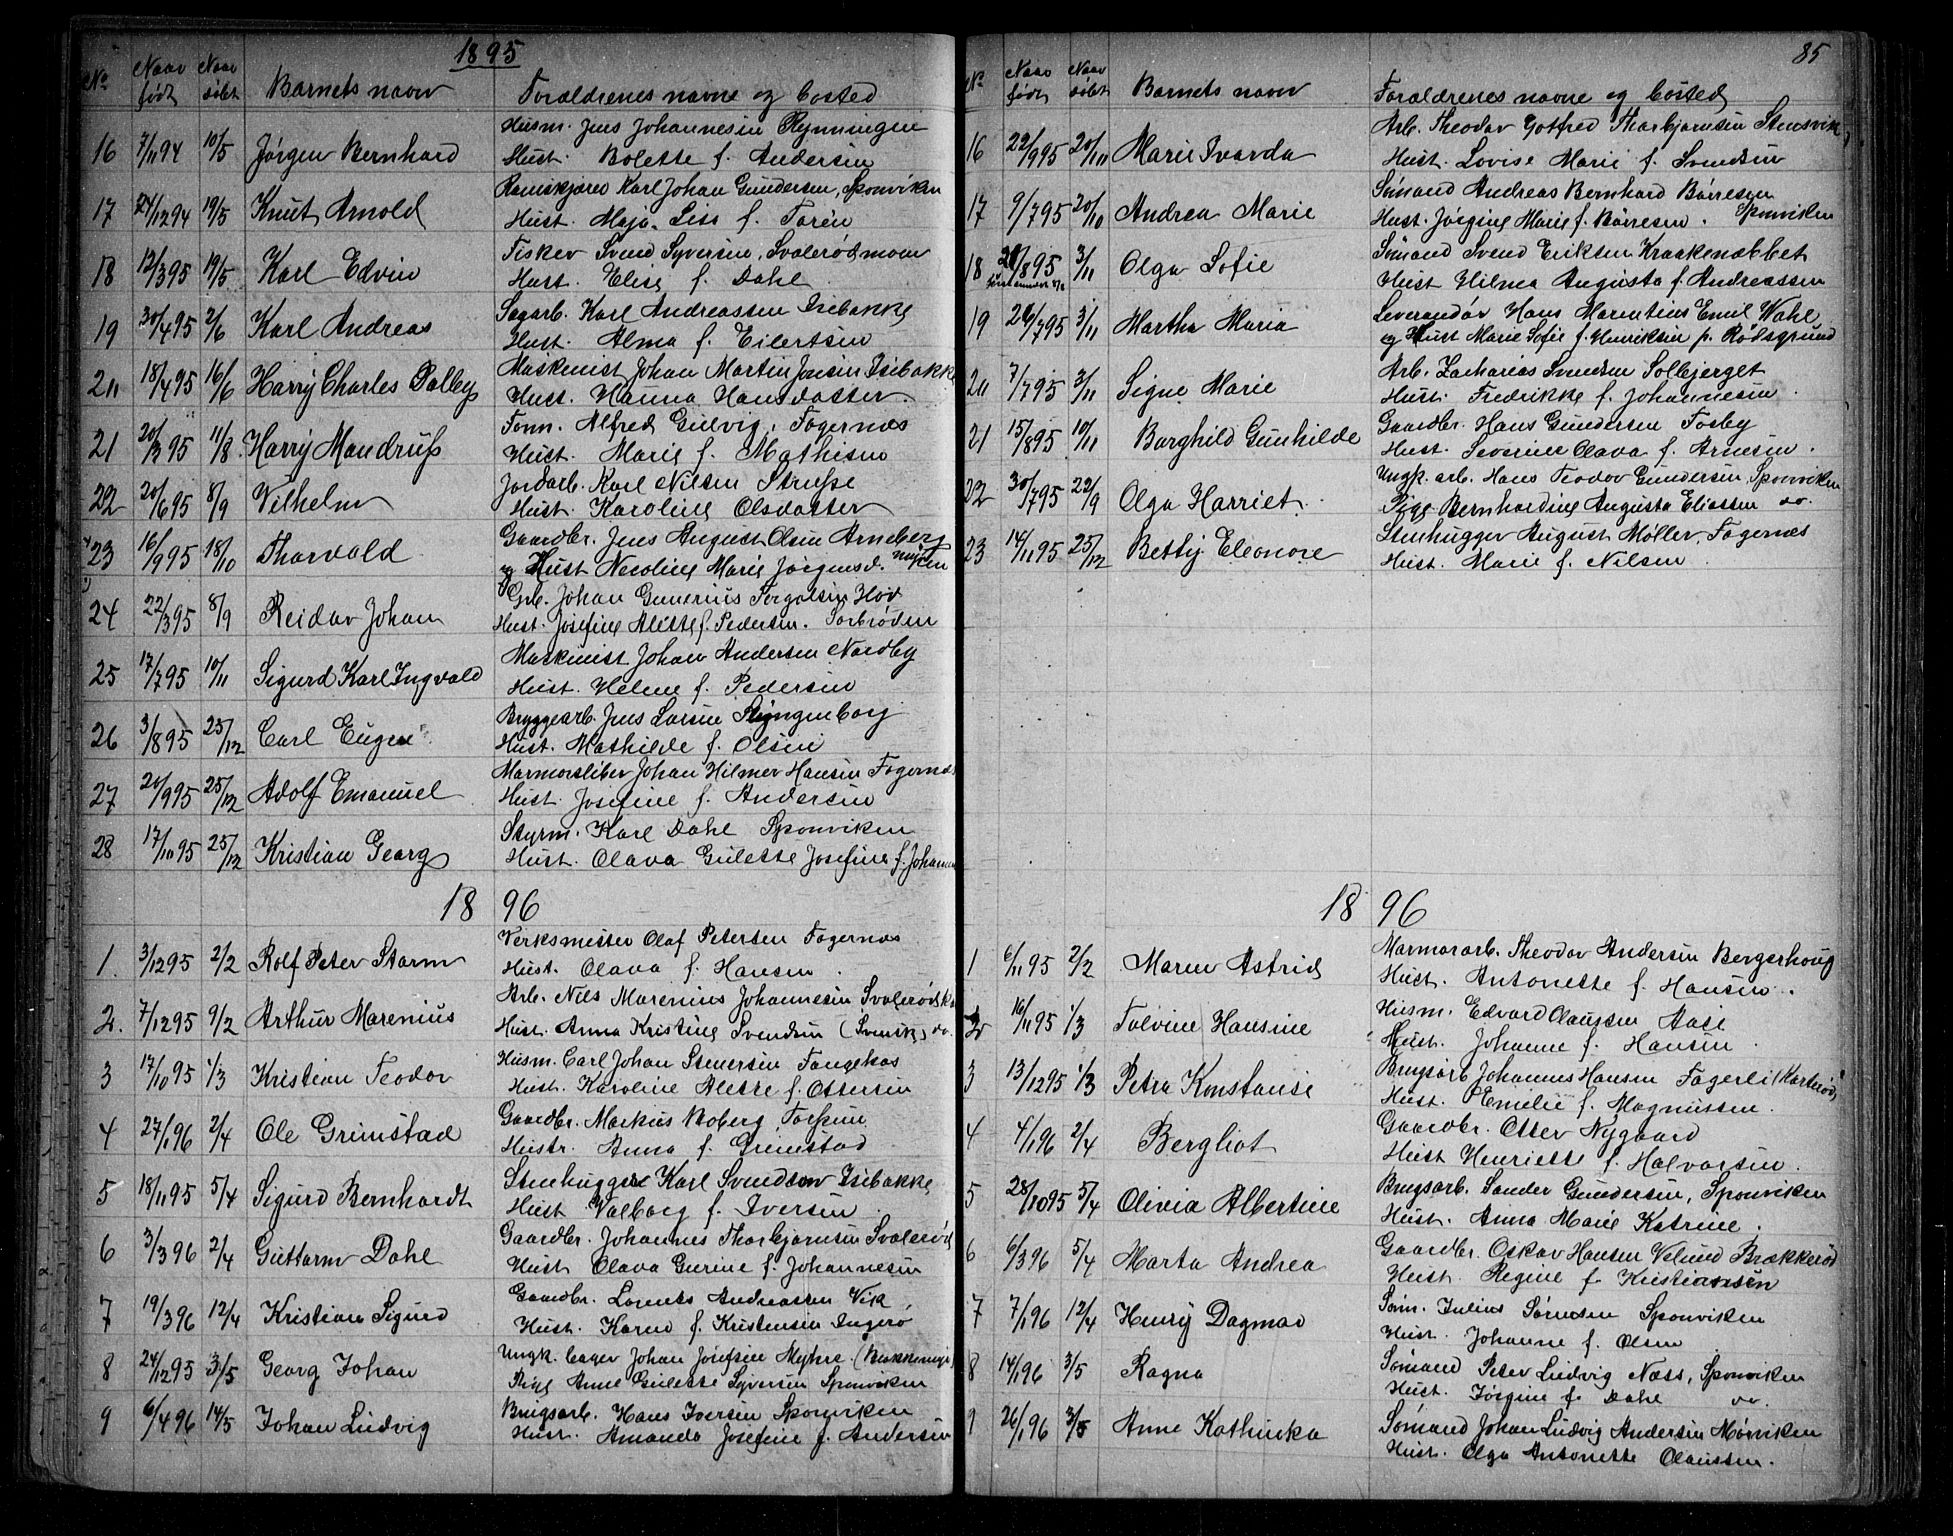 1895
No Naar født Naar døbt Barnets navn Forældrenes navne og bosted
16 7/11 94 10/5 Jørgen Bernhard Husm. Jens Johannesen Rynningen
Hust. Bolette f. Andersen
17 24/12 94 19/5 Knut Arnold Karl Johan Gundersen, Sponviken
Hust. Maja Lisa f. Torén
18 12/3 95 19/5 Karl Edvin Fisker Svend Syversen, Svalerødmoen
Hust. Elise f. Dahl
19 30/4 95 2/6 Karl Andreas Sagarb. Karl Andreassen Isebakke
Hust. Alma f. Eilertsen
20 18/4 95 16/6 Harry Charles Palley Maskinist Johan Martin Jensen Isebakke
Hust. Hanna Hansdatter
21 20/3 95 11/8 Harry Mandrup Form. Alfred Gulvig, Fagernes
Hust. Marie f. Mathisen
22 20/6 95 8/9 Vilhelm Jordarb. Karl Nilsen Strupe
Hust. Karoline Olsdatter
23 16/9 95 18/10 Thorvald Gaardbr. Jens August Olsen Arneberg
og Hust Nicoline Marie Jørgensd.
24 22/3 95 8/9 Reidar Johan Grb. Johan Gunerius Torgalsen Hov
Hust. Josefine Alette f. Pedersen. Torbrøden
25 17/7 95 10/11 Sigurd Karl Ingvald Maskinist Johan Andersen Nordby
Hust. Helene f. Pedersen
26 3/8 95 25/12 Carl Eugen Bryggearb. Jens Larsen Slyngenborg
Hust. Mathilde f. Olsen
27 20/9 95 25/12 Adolf Emanuel Marmorsliber Johan Hilmer Hansen Fagernes
Hust. Josefine f. Andersen
28 17/10 95 25/12 Kristian Georg Styrm. Karl Dahl Sponviken
Hust. Olava Gulette Josefine f. Johannes
1896
1. 3/12 95 2/2 Rolf Peter Storm Verksmester Olaf Petersen Fagernes
Hust. Olava f. Hansen
2. 7/12 95 9/2 Arthur Marenius Arb. Nils Marenius Johannesen Svalerødki
Hust. Anna Kristine Svendsen (Svensk) do.
3 17/10 95 1/3 Kristian Teodor Husm. Carl Johan Stenersen Tangekas
Hust. Karoline Alette f. Ottersen
4 27/1 96 2/4 Ole Grimstad Gaardbr. Markus Boberg, Torpum
Hustr. Anna f. Grimstad
5 18/11 95 5/4 Sigurd Bernhardt Stenhugger Karl Svendsen Isebakke
Hust Valborg f. Iversen
6 3/3 96 2/4 Guttorm Dahl Gaardbr. Johannes Thorbjørnsen Svalerød
Hust Olava Gurine f. Johannesen
7 19/3 96 12/4 Kristian Sigurd Gaardbr. Lorents Andreassen Vik
Hust. Karen f. Kristensen Ingerø
8 24/12 95 3/5 Georg Johan Ungk. bager Johan Josefsen Myhre
Pige Anne Gulette Syversen Sponviken
9 6/4 96 14/5 Johan Ludvig Brugsarb. Hans Iversen Sponviken
Hust. Amanda Josefine f. Andersen
85
No Naar født Naar døbt Barnets navn Forældrenes navne og bosted
16 22/9 95 20/10 Marie Ivarda Arb. Theodor Gotfred Thorbjørnsen Stensvik
Hust. Lovise Marie f. Svendsen
17 9/7 95 20/10 Andrea Marie Sømand Andreas Bernhard Børresen
Hust. Jørgine Marie f. Børresen. Sponviken
18 21/8 95 3/11 Olga Sofie Sømand Svend Eriksen Kraakenæbbet
Hust Hilma Augusta f. Andreassen
19 26/7 95 3/11 Martha Maria Leverandør Hans Marentius Emil Wahl
og Hust Marie Sofie f. Henriksen p. Rødsgrund
20 7/7 95 3/11 Signe Marie Arb. Zacharias Svendsen Solbjerget
Hust. Fredrikke f. Johannesen
21 15/8 95 10/11 Borghild Gunhilde Gaardbr. Hans Gundersen Fosby
Hust. Severine Olava f. Arnesen.
22 30/7 95 22/9 Olga Harriet. Ungk. arb. Hans Teodor Gundersen, Sponviken
Pige Bernhardine Augusta Eliassen do.
23 14/11 95 25/12 Betty Eleonore Stenhugger August Møller, Fagernes
Hust. Marie f. Nilsen
1896
1 6/11 95 2/2 Maren Astrid Marmorarb. Theodor Andersen Bergerhoug
Hust. Antonette f. Hansen.
2 16/11 95 1/3 Tolvine Hansine Husm. Edvard Claussen Aase
Hust. Johanne f. Hansen.
3 13/12 95 1/3 Petra Konstanse Brugsarb Johannes Hansen Fagerli (Karterød)
Hust. Emelie f. Magnussen.
4 4/1 96 2/4 Bergliot Gaardbr. Otter Nygaard
Hust Henriette f. Halvorsen.
5 28/10 95 5/4 Olivia Albertine Brugsarb. Sander Gundersen, Sponviken
Hust. Anna Marie Katrine.
6 6/3 96 5/4 Marta Andrea Gaardbr. Oskar Hansen Velund Brækkerød
Hust. Regine f. Kristiansen
7 7/1 96 12/4 Henry Dagmar Søm. Julius Sørensen Sponviken
Hust. Johanne f. Olsen
8 14/1 96 3/5 Ragna Sømand Peter Ludvig Næss, Sponviken
Hust. Jørgine f. Dahl do.
9 26/1 96 3/5 Anne Kathinka Sømand Johan Ludvig Andersen Mørviken
Hust. Olga Antonette Olaussen.